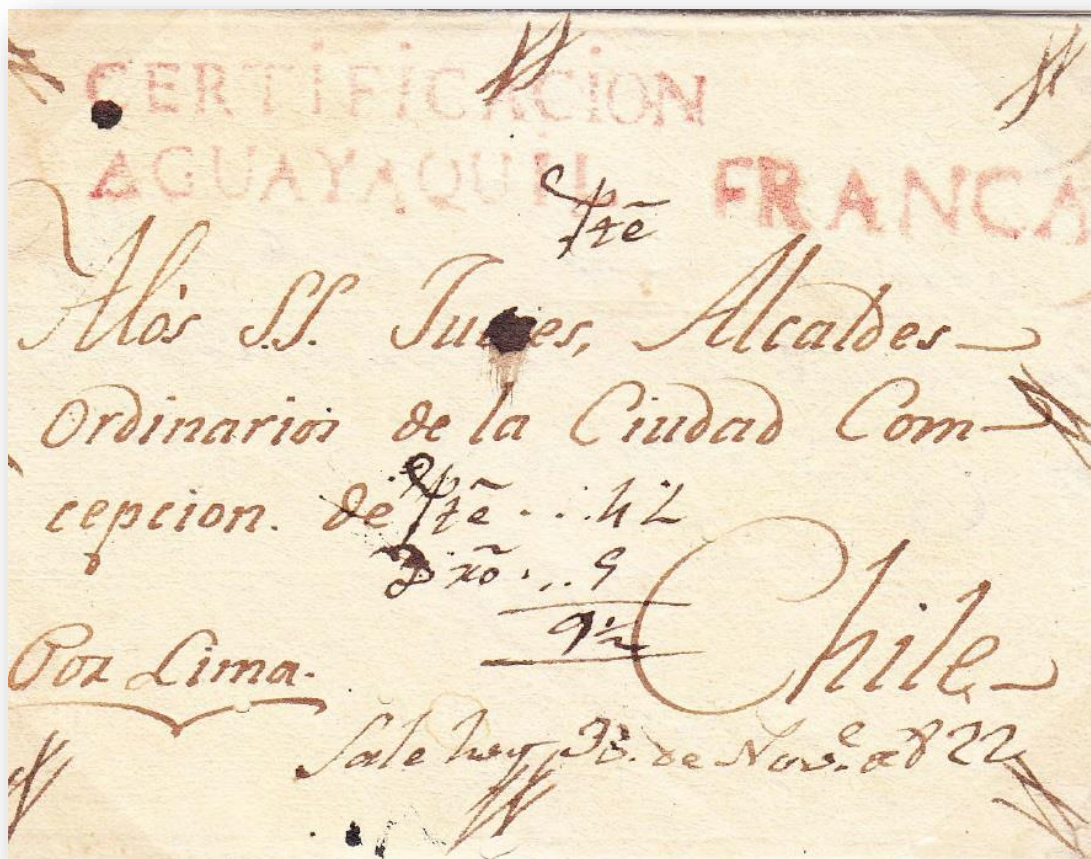 CERTIFICACION
AGUAYAQUIL FRANCA
Pte
Alos S.S. Jueces, Alcaldes
Ordinarios de la Ciudad Com-
cepcion. de
Pte . . . 4½
Dro . . . 5
9½
Chile
Por Lima.
Sale hoy de Nove. de 822